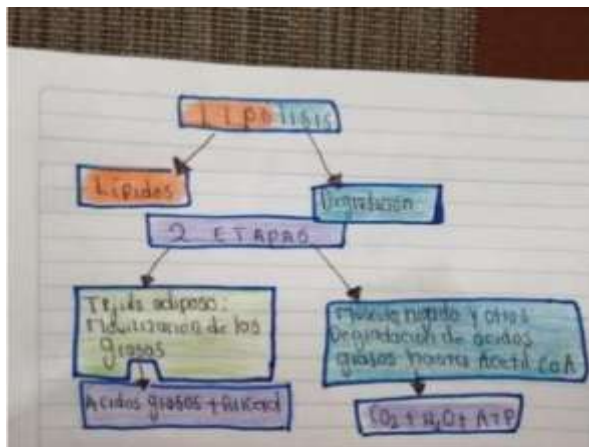 Lipólisis
Lípidos
Degradación
2 ETAPAS
Tejido adiposo:
Movilización de las
grasas
Músculo hígado y otros
Degradación de ácidos
grasos hasta Acetil CoA
Acidos grasos + Glicerol
CO2 + H2O + ATP